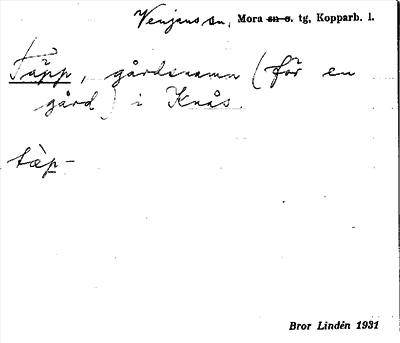 Venjans sn, Mora sn o. tg, Kopparb. l.
Täpp, gårdsnamn (för en
gård) i Knås.
tæ̀p-
Bror Lindén 1931